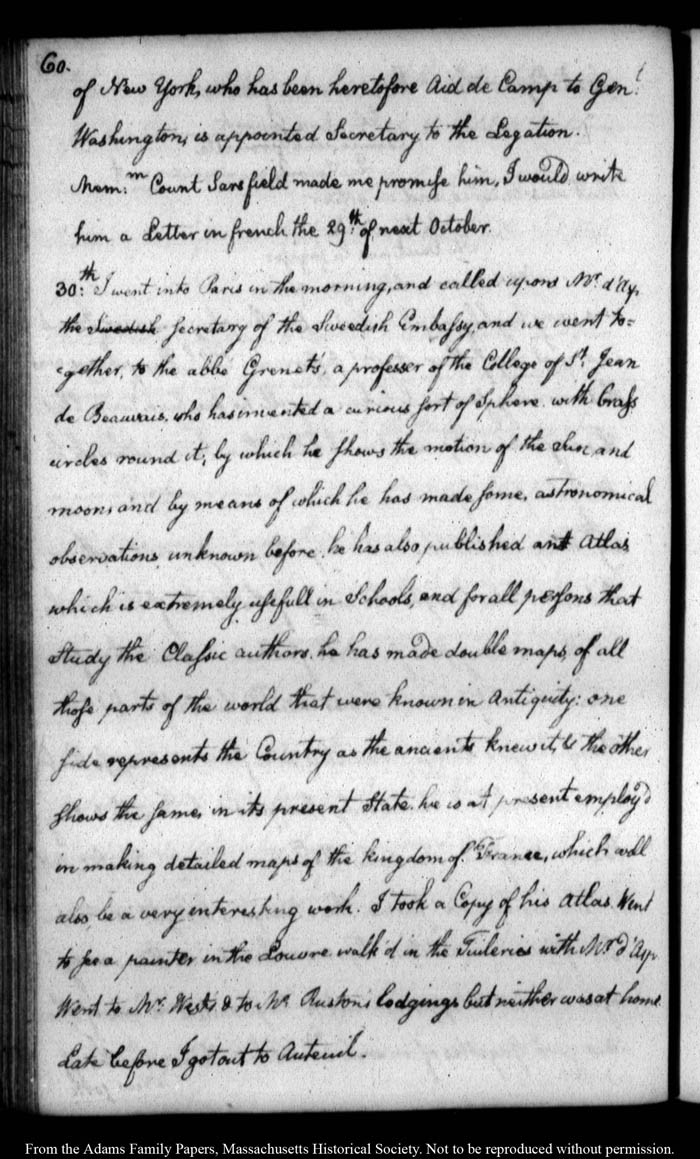 60.
of New York, who has been heretofore Aid de Camp to Genl.
Washington, is appointed Secretary to the Legation.
Mem:m Count Sarsfield made me promise him, I would write
him a Letter in french the 29th: of next October.
30:th I went into Paris in the morning, and called upon Mr. d'Ay,
the Swedish Secretary of the Sweedish Embassy, and we went to=
=gether, to the abbe Grenet's, a professer of the College of St. Jean
de Beauvais, who has invented a curious sort of Sphere with brass
circles round it, by which he shows the motion of the Sun, and
moon, and by means of which he has made some, astronomical
observations, unknown before. he has also published an Atlas
which is extremely usefull in Schools, and for all persons that
Study the Classic authors. he has made double maps, of all
those parts of the world that were known in Antiquity: one
side represents the Country as the ancients knew it, & the other
shows the same, in its present State. he is at present employ'd
in making detailed maps of the kingdom of France, which will
also, be a very interesting work. I took a Copy of his Atlas. Went
to see a painter in the Louvre walk'd in the Tuileries with Mr. d'Ay.
Went to Mr. West's & to Mr. Ruston's lodgings but neither was at home.
Late before I got out to Auteuil.
From the Adams Family Papers, Massachusetts Historical Society. Not to be reproduced without permission.